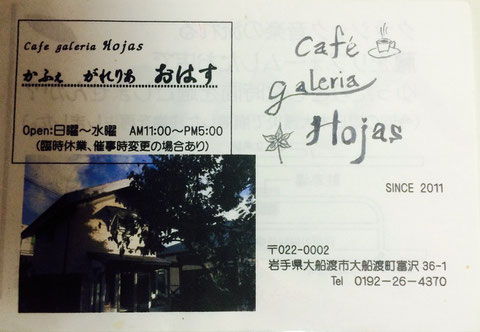 Cafe galeria Hojas
かふぇ がれりあ おはす
Open:日曜～水曜 AM11:00～PM5:00
(臨時休業、催事時変更の場合あり)
Café
galeria
Hojas
SINCE 2011
〒022-0002
岩手県大船渡市大船渡町富沢36-1
Tel 0192-26-4370